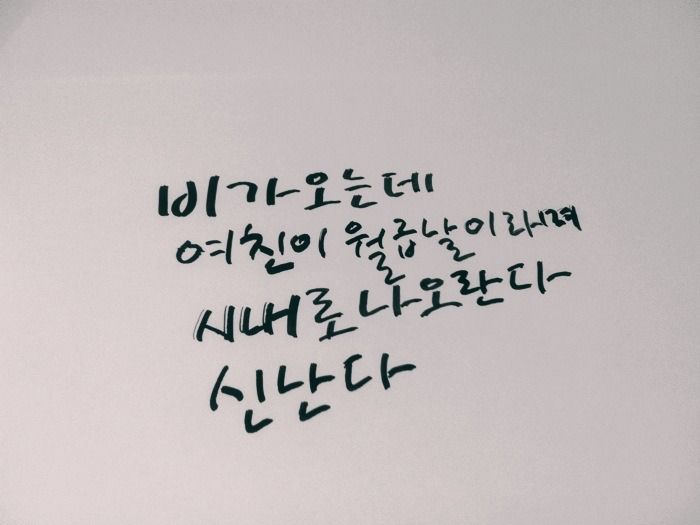 비가오는데
여친이 월급날이라며
시내로나오란다
신난다